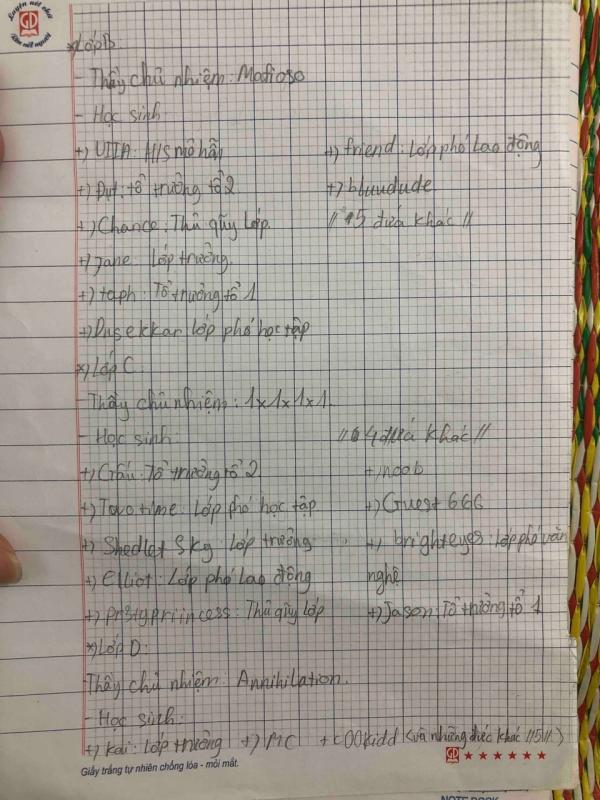 Luyện nét chữ
GD
Rèn nết người
*) Lớp B
- Thầy chủ nhiệm: Mafioso
- Học sinh:
+) friend: Lớp phó lao động
+) Tổ trưởng tổ 2
+) bluudude
+) Chance: Thủ quỹ lớp.
// 15 đứa khác //
+) Jane: Lớp trưởng.
+) taph: Tổ trưởng tổ 1
+) Dusekkar lớp phó học tập
*) Lớp C:
- Thầy chủ nhiệm: 1x1x1x1.
- Học sinh:
đứa khác //
+) Gấu: Tổ trưởng tổ 2
+) noob
+) Two time: Lớp phó học tập
+) Guest 666
+) Shedletsky lớp trưởng
+) brighteyes: lớp phó văn
nghệ
+) Elliot: Lớp phó lao động
+) pr3typriincess: Thủ quỹ lớp
+) Jason: Tổ trưởng tổ 1
*) Lớp D:
- Thầy chủ nhiệm: Annihilation.
- Học sinh:
+) Kai: Lớp trưởng +) MC + c00lkidd (và những đứa khác //5//)
Giấy trắng tự nhiên chống lóa - mỏi mắt.
GD
NOTE BOOK